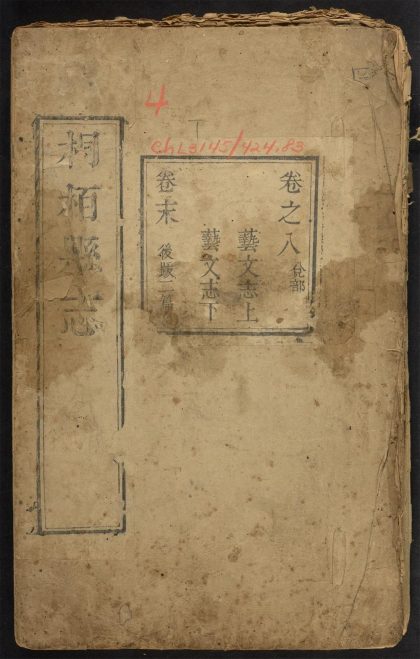 4
ChL3145/424.83
桐柏縣志
卷之八 兌部
藝文志上
藝文志下
卷末 後跋二篇